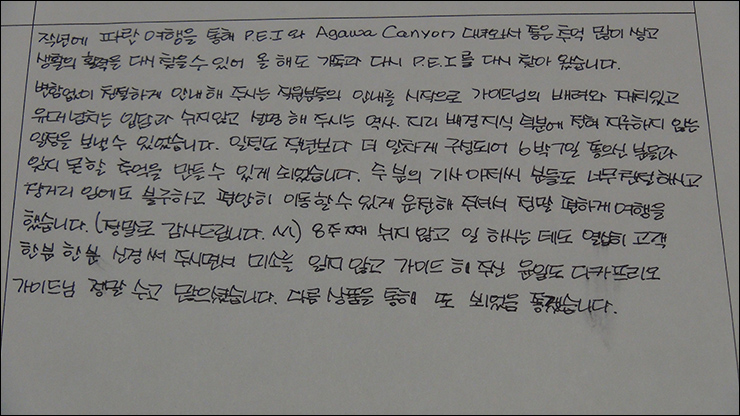 작년에 파란여행을 통해 P.E.I와 Agawa Canyon 다녀와서 좋은 추억 많이 쌓고
생활의 활력을 다시 찾을 수 있어 올 해도 가족과 다시 P.E.I를 다시 찾아 왔습니다.
변함없이 친절하게 안내해 주시는 직원분들의 안내를 시작으로 가이드님의 배려와 재미있고
유머 넘치는 입담과 쉬지않고 설명 해 주시는 역사. 지리 배경지식 덕분에 전혀 지루하지 않는
일정을 보낼 수 있었습니다. 일정도 작년보다 더 알차게 구성되어 6박7일 동안 분들과
잊지 못할 추억을 만들 수 있게 되었습니다. 두 분의 기사 아저씨 분들도 너무 친절하시고
장거리 임에도 불구하고 편안히 이동할 수 있게 운전해 주셔서 정말 편하게 여행을
했습니다. (정말로 감사드립니다.) 8주째 쉬지 않고 일 하시는 데도 열심히 고객
한분 한분 신경써 주시면서 미소를 잃지 않고 가이드 해 주신 윤일도 디카프리오
가이드님 정말 수고 많으셨습니다. 다음 상품을 통해 또 뵈었음 좋겠습니다.